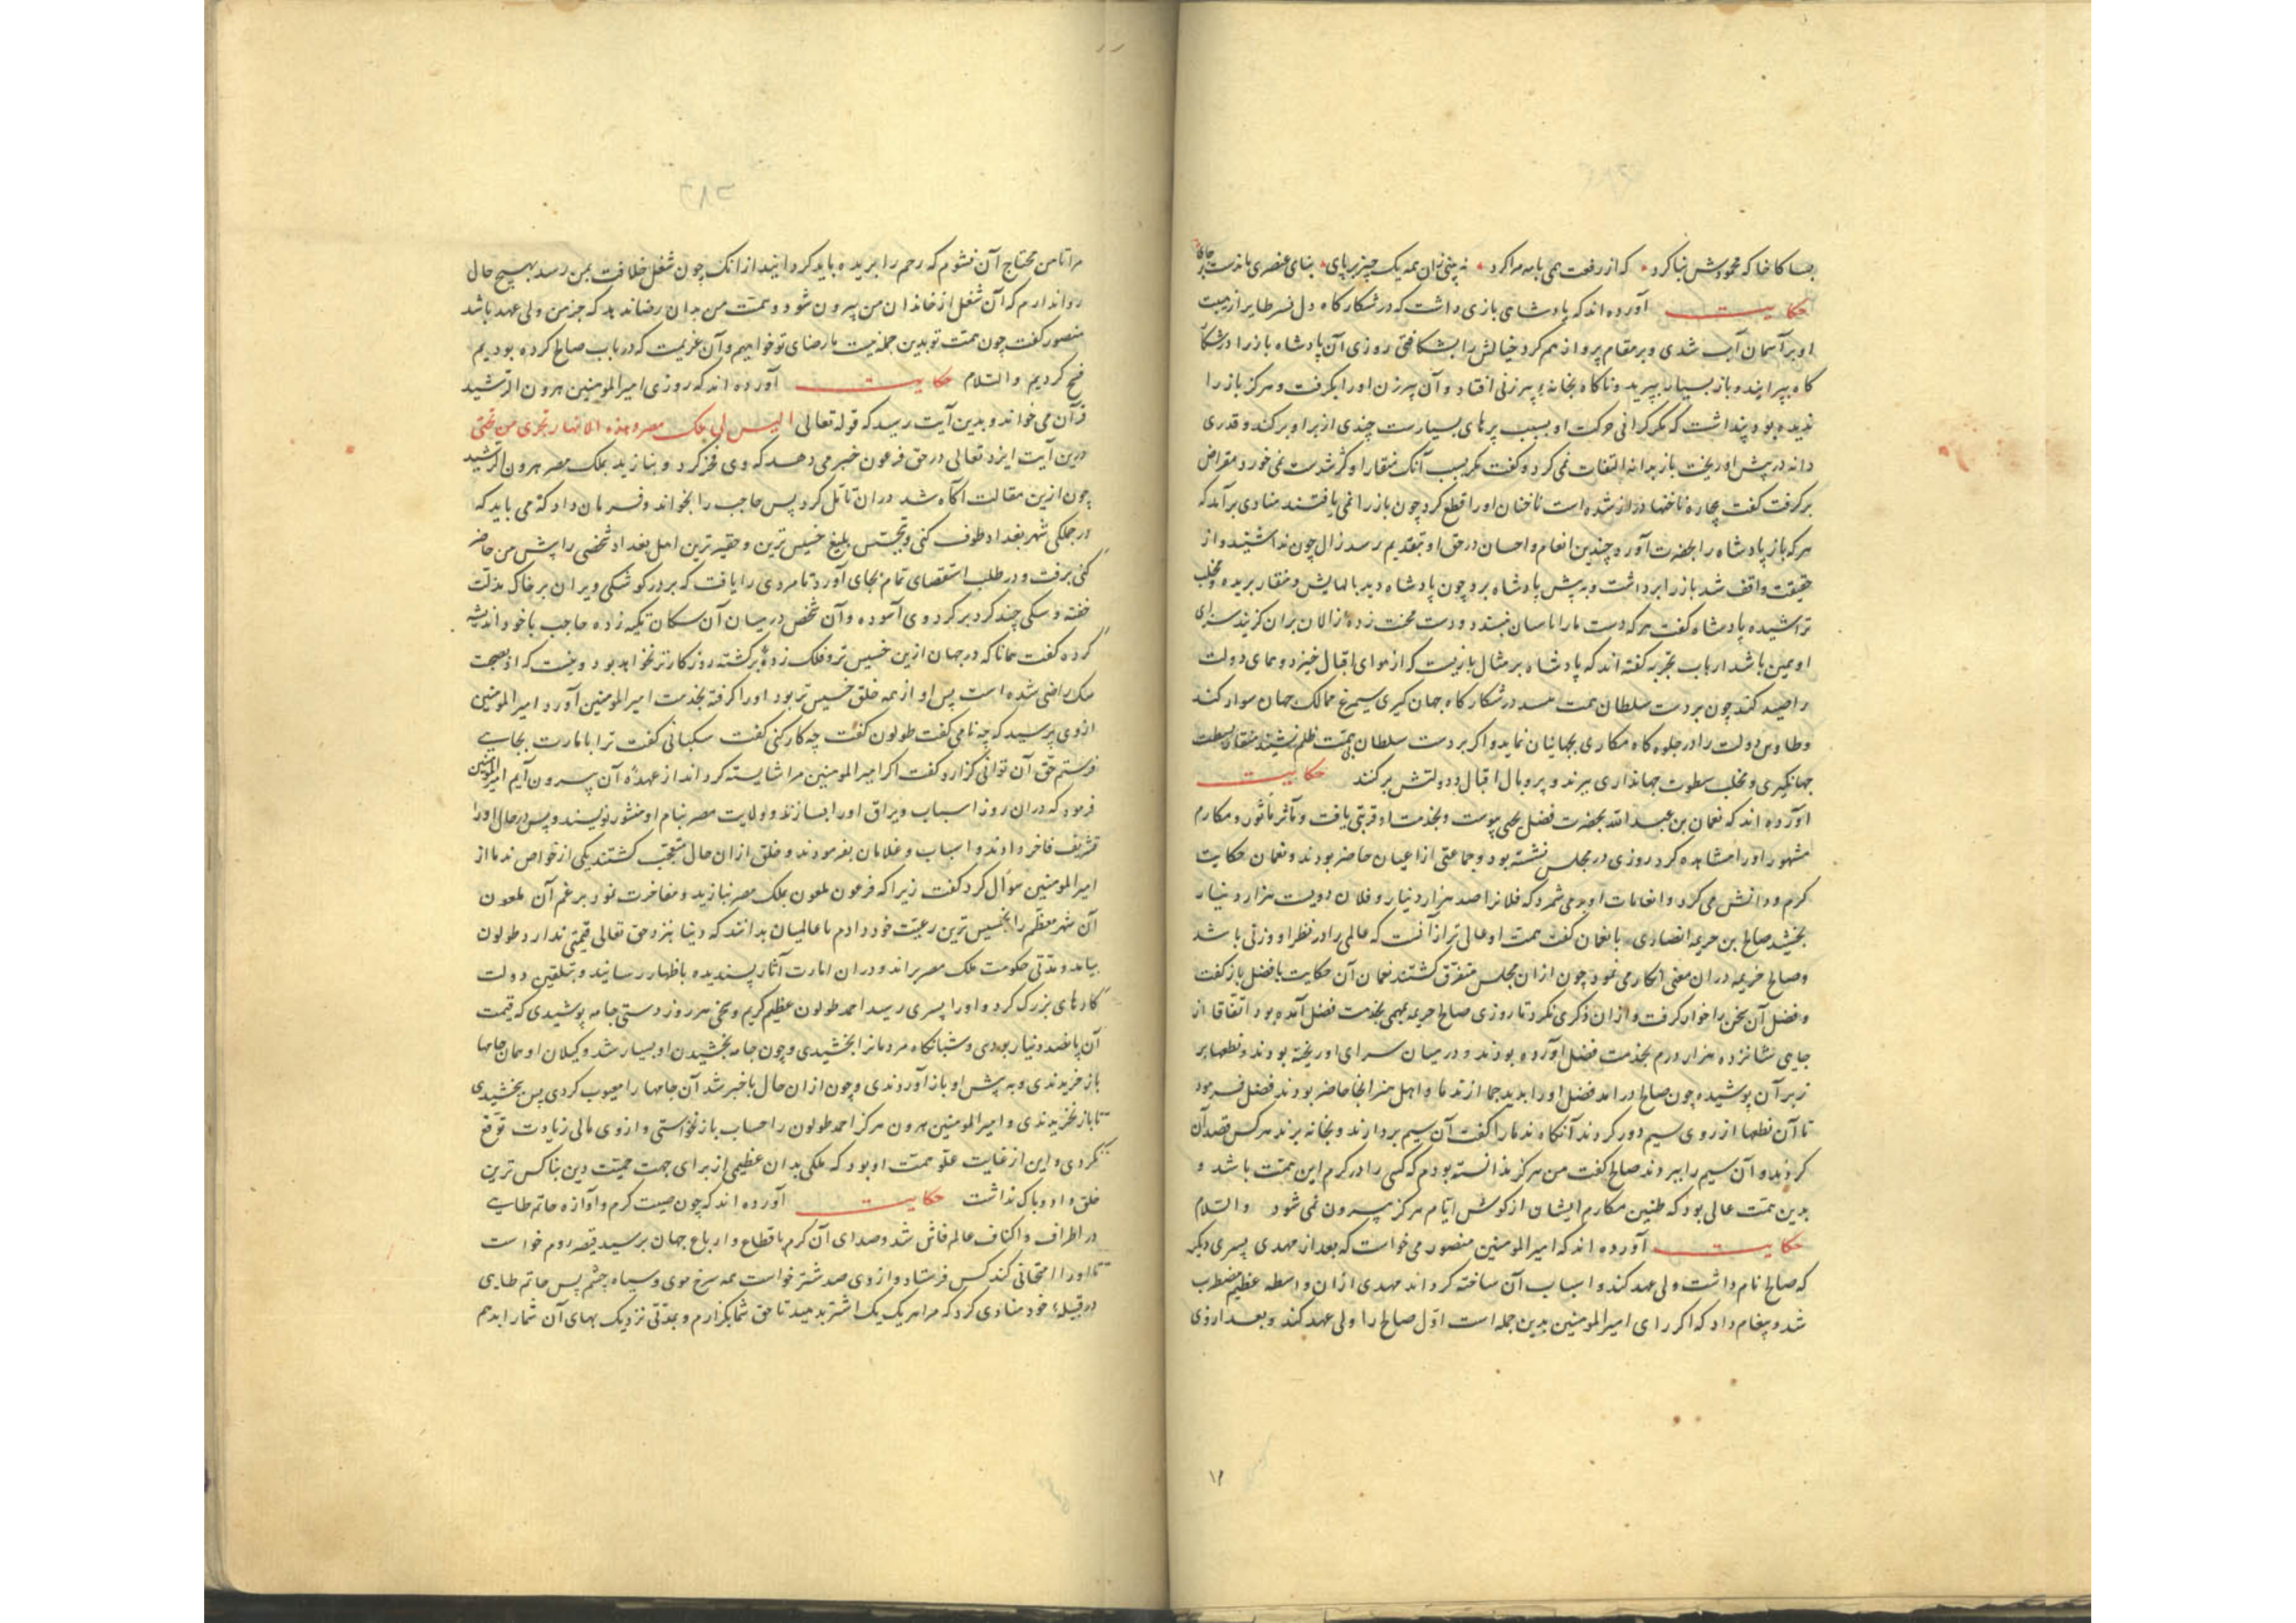 بسا کاخا که محمودش بنا کرد که از رفعت همی با مه مرا کرد نه بینی زان همه یک چیز بر پای بنای عنصری ماندست بر جای
حکایت آورده اند که پادشاهی بازی داشت که در شکارگاه دل نسر طایر از هیبت
او بر آسمان آب شدی و بر مقام پرواز هم کرد خیالش را بشکافتی روزی آن پادشاه باز را در شکار
گاه بپرانید و باز بسیار بپرید و ناگاه بخانه پیرزنی افتاد و آن پیرزن او را بگرفت و هرگز باز را
ندیده بود پنداشت که مگر گرانی حرکت او بسبب پرهای بسیارست چندی از پر او بر کند و قدری
دانه در پیش او ریخت باز بدانه التفات نمی کرد و گفت مگر بسبب آنک منقار او کژ شدست نمی خورد مقراض
برگرفت گفت بیچاره ناخنها دراز شده است ناخنان او را قطع کرد چون باز را نمی یافتند منادی برآمد که
هر که باز پادشاه را بحضرت آورد چندین انعام و احسان در حق او بتقدیم رسد زال چون ندا شنید و از
حقیقت واقف شد باز را برداشت و به پیش پادشاه برد چون پادشاه دید بالهایش و منقار بریده و مخلب
تراشیده پادشاه گفت هر که دست ما را با سان نبیند و دست محنت زده زالان بر آن گزیند سزای
او همین باشد ارباب تجربه گفته اند که پادشاه بر مثال بازیست که از هوای اقبال خیزد و همای دولت
را صید کند چون بر دست سلطان همت رسد در شکارگاه جهان گیری سیمرغ ممالک جهان سواد کند
و طاوس دولت را در جلوه گاه مکاری بجهانیان نماید و اگر بر دست سلطان بی همت ظلم نشیند منقار بسطت
جهانگیری و مخلب سطوت جهانداری ببرند و پر و بال اقبال و دولتش بر کنند حکایت
آورده اند که نعمان بن عبد الله بحضرت فضل یحیی پیوست و بخدمت او قربتی یافت و مآثر ماثور و مکارم
مشهور او را مشاهده کرد روزی در مجلس نشسته بود و جماعتی از اعیان حاضر بودند و نعمان حکایت
کرم و دانش می کرد و انعامات او بر می شمرد که فلانرا صد هزار دینار و فلان دویست هزار دینار
بخشید صالح بن خریمه انصاری با نعمان گفت همت او عالی تر از آنست که عالمی را در نظر او وزنی باشد
و صالح خریمه در آن معنی انکار می نمود چون از آن مجلس متفرق گشتند نعمان آن حکایت با فضل باز گفت
و فضل آن سخن را خوار گرفت و از آن ذکری نکرد تا روزی صالح خریمه بمهمی بخدمت فضل آمده بود اتفاقا از
جایی شانزده هزار درم بخدمت فضل آورده بودند و در میان سرای او ریخته بودند و نطعها بر
زبر آن پوشیده چون صالح در آمد فضل او را بدید جمله از ندما و اهل هنر آنجا حاضر بودند فضل فرمود
تا آن نطعها از روی سیم دور کردند آنگاه ندما را گفت آن سیم بردارند و بخانه برند هر کس قصد آن
کردند و آن سیم را ببردند صالح گفت من هرگز ندانسته بودم که کسی را در کرم این همت باشد و
بدین همت عالی بود که طنین مکارم ایشان از گوش ایام هرگز بیرون نمی شود والسلام
حکایت آورده اند که امیر المومنین منصور می خواست که بعد از مهدی پسری دیگر
که صالح نام داشت ولی عهد کند و اسباب آن ساخته گرداند مهدی از آن واسطه عظیم مضطرب
شد و پیغام داد که اگر رای امیر المومنین بدین جمله است اول صالح را ولی عهد کند و بعد از وی
۱۲
مرا تا من محتاج آن نشوم که رحم را بریده باید گردانید از آنک چون شغل خلافت بمن رسد بهیچ حال
روا ندارم که آن شغل از خاندان من بیرون شود و همت من بدان رضا ندهد که جز من ولی عهد باشد
منصور گفت چون همت تو بدین جمله است ما رضای تو خواهیم و آن عزیمت که در باب صالح کرده بودیم
فسخ کردیم والسلام حکایت آورده اند که روزی امیر المومنین هرون الرشید
قرآن می خواند و بدین آیت رسید که قوله تعالی الیس لی ملک مصر و هذه الانهار تجری من تحتی
درین آیت ایزد تعالی در حق فرعون خبر می دهد که وی فخر کرد و بنازید بملک مصر هرون الرشید
چون ازین مقالت آگاه شد در آن تامل کرد پس حاجب را بخواند و فرمان داد که می باید که
در جملگی شهر بغداد طوف کنی و تجسس بلیغ خسیس ترین و حقیرترین اهل بغداد شخصی را پیش من حاضر
کنی برفت و در طلب استقصای تمام بجای آورد تا مردی را یافت که بر در کوشکی ویران بر خاک مذلت
خفته و سگی چند گرد بر گرد وی آسوده و آن شخص در میان آن سگان تکیه زده حاجب با خود اندیشه
کرده گفت همانا که در جهان ازین خسیس تر و فلک زده برگشته روزگارتر نخواهد بود و نیست که او بصحبت
سگ راضی شده است پس او از همه خلق خسیس تر بود او را گرفته بخدمت امیر المومنین آورد امیر المومنین
از وی پرسید که چه نامی گفت طولون گفت چه کار کنی گفت سگبانی گفت ترا بامارت بجایی
فرستم حق آن توانی گزارد گفت اگر امیر المومنین مرا شایسته گرداند از عهده آن بیرون آیم امیر المومنین
فرمود که در آن روز اسباب و یراق او را بسازند و ولایت مصر بنام او منشور نویسند و پس در حال او را
تشریف فاخر دادند و اسباب و غلامان بفرمودند و خلق از آن حال متعجب گشتند یکی از خواص ندما از
امیر المومنین سوال کرد گفت زیرا که فرعون ملعون بملک مصر بنازید و مفاخرت نمود بر غم آن ملعون
آن شهر معظم را بخسیس ترین رعیت خود دادم تا عالمیان بدانند که دنیا نزد حق تعالی قیمتی ندارد طولون
بیامد و مدتی حکومت ملک مصر براند و در آن امارت آثار پسندیده باظهار رسانید و بتلقین دولت
کارهای بزرگ کرد و او را پسری رسید احمد طولون عظیم کریم و سخی هر روز دستی جامه پوشیدی که قیمت
آن پانصد دینار بودی و شبانگاه مردمانرا بخشیدی و چون جامه بخشیدن او بسیار شد وکیلان او همان جامها
باز خریدندی و به پیش او باز آوردندی و چون از آن حال باخبر شد آن جامها را معیوب کردی پس بخشیدی
تا باز نخریدندی و امیر المومنین هرون هرگز احمد طولون را حساب باز نخواستی و از وی مالی زیادت توقع
نکردی و این از غایت علو همت او بود که ملکی بدان عظیمی از برای جهت حمیت دین بناکس ترین
خلق داد و باک نداشت حکایت آورده اند که چون صیت کرم و آوازه حاتم طایی
در اطراف و اکناف عالم فاش شد و صدای آن کرم باقطاع و ارباع جهان برسید قیصر روم خواست
تا او را امتحانی کند کس فرستاد و از وی صد شتر خواست همه سرخ موی و سیاه چشم پس حاتم طایی
در قبیله خود منادی کرد که مرا هر یک یک اشتر بدهید تا حق شما بگزارم و بمدتی نزدیک بهای آن شما را بدهم